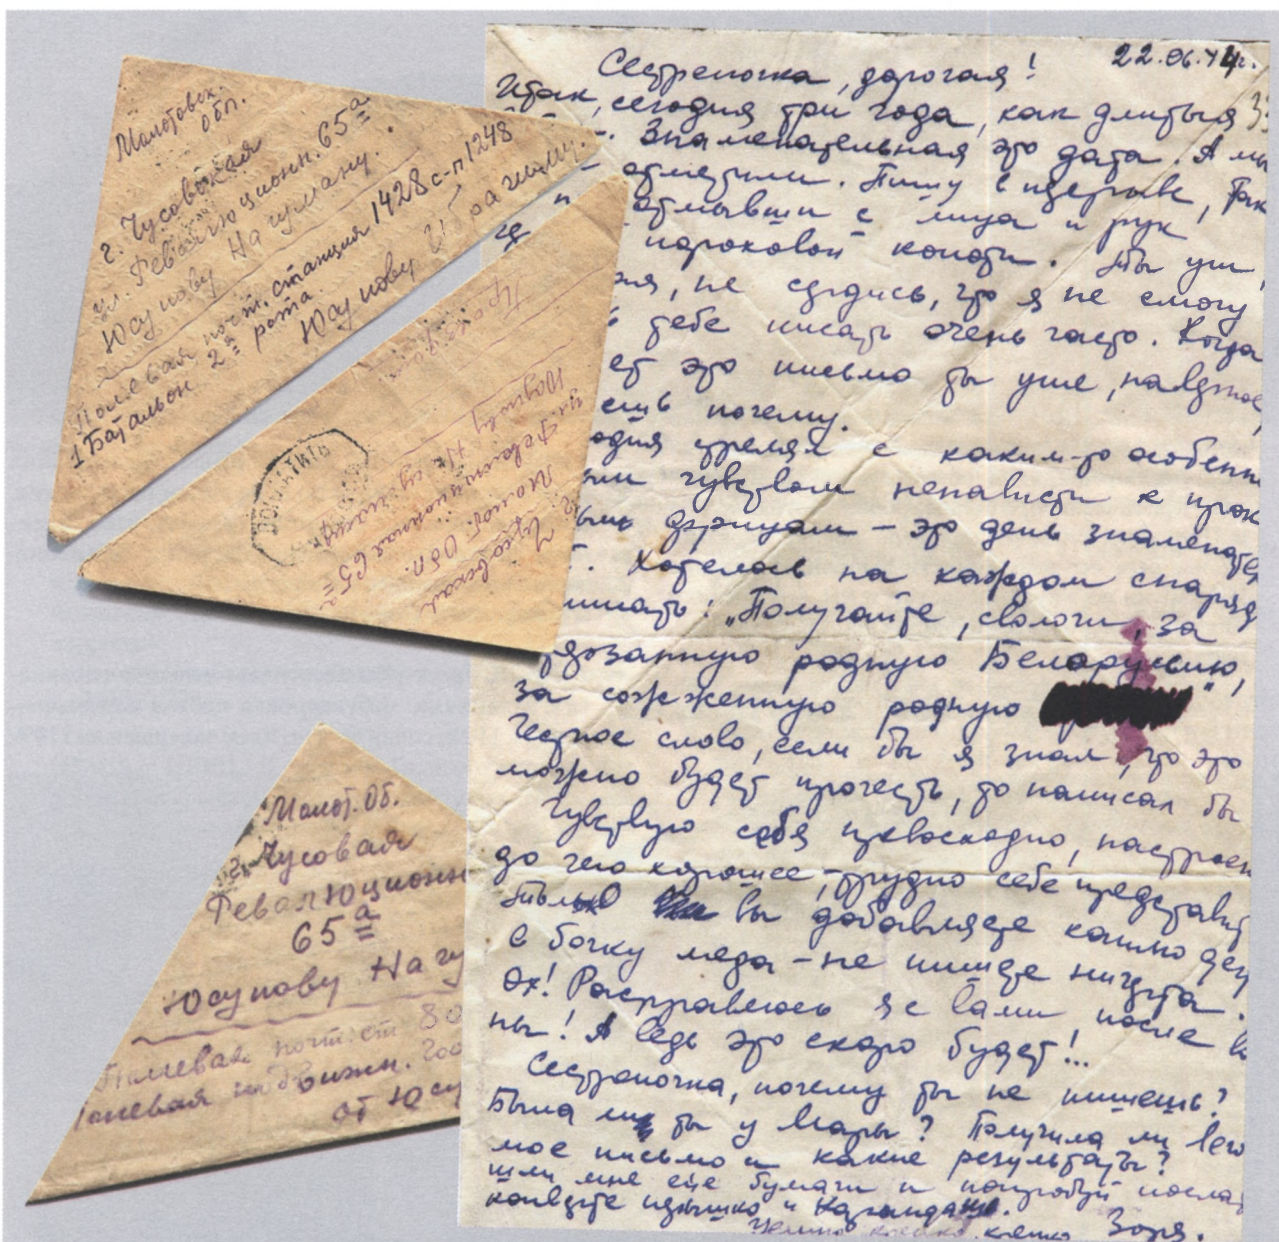 Молотовск.
Обл.
г. Чусовская
ул. Февалюционн. 65а
Юсупову Нагуману.
Полевая почт. станция 1428 с-п 1248
1 Батальон 2а рота
Юсупову
Чусовская
Молот. Обл.
ул. Февалюционная 65а
Молот. Об.
Чусовая
Февалюционн
65а
Юсупову Нагу
Полевая почт. ст 80
Полевая подвижн. Гос
от Юсу
22.06.44г.
Сестреночка, дорогая!
Итак, сегодня три года, как длиться
Знаменательная это дата. А мы
отметили. Пишу с перерыве, так
отмывши с лица и рук
пороховой копоти. Ты уж,
не сердись, что я не смогу
тебе писать очень часто. Когда
ет это письмо ты уже, наверное,
ешь почему.
одня стрелял с каким-то особенн
ым чувством ненависти к прок
ым фрицам – это день знаменате
. Хотелось на каждом снаряд
писать: „Получайте, сволочи, за
рзанную родную Беларусию,
за сожженную родную
Честное слово, если бы я знал, что это
можно будет прочесть, то написал бы
Чувствую себя превосходно, настроен
до чего хорошее, трудно себе представит
Только вы добавляете каплю дег
в бочку меда – не пишете ничего.
Ох! Расправлюсь я с вами после в
ны! А ведь это скоро будет!...
Сестреночка, почему ты не пишешь?
Была ли ты у Мары? Получила ли
мое письмо и какие результаты?
шли мне еще бумаги и попробуй посла
конверте перышко и карандаш.
Зоря.